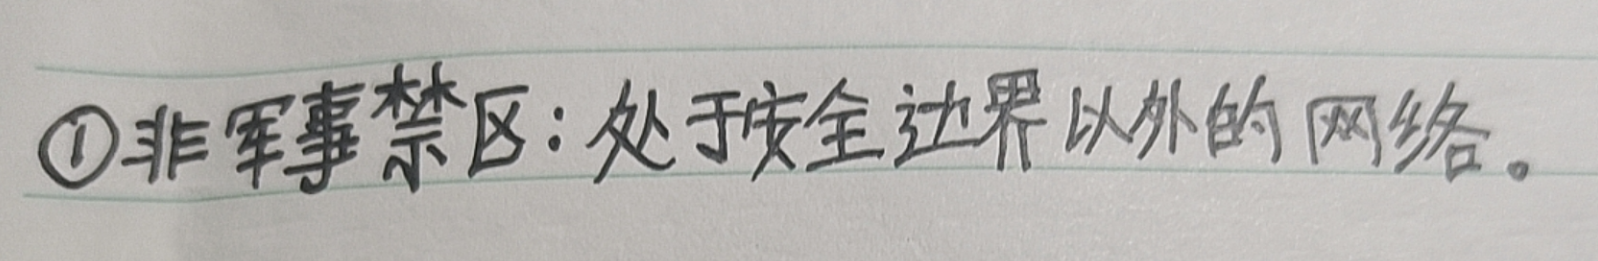 ①非军事禁区：处于安全边界以外的网络。